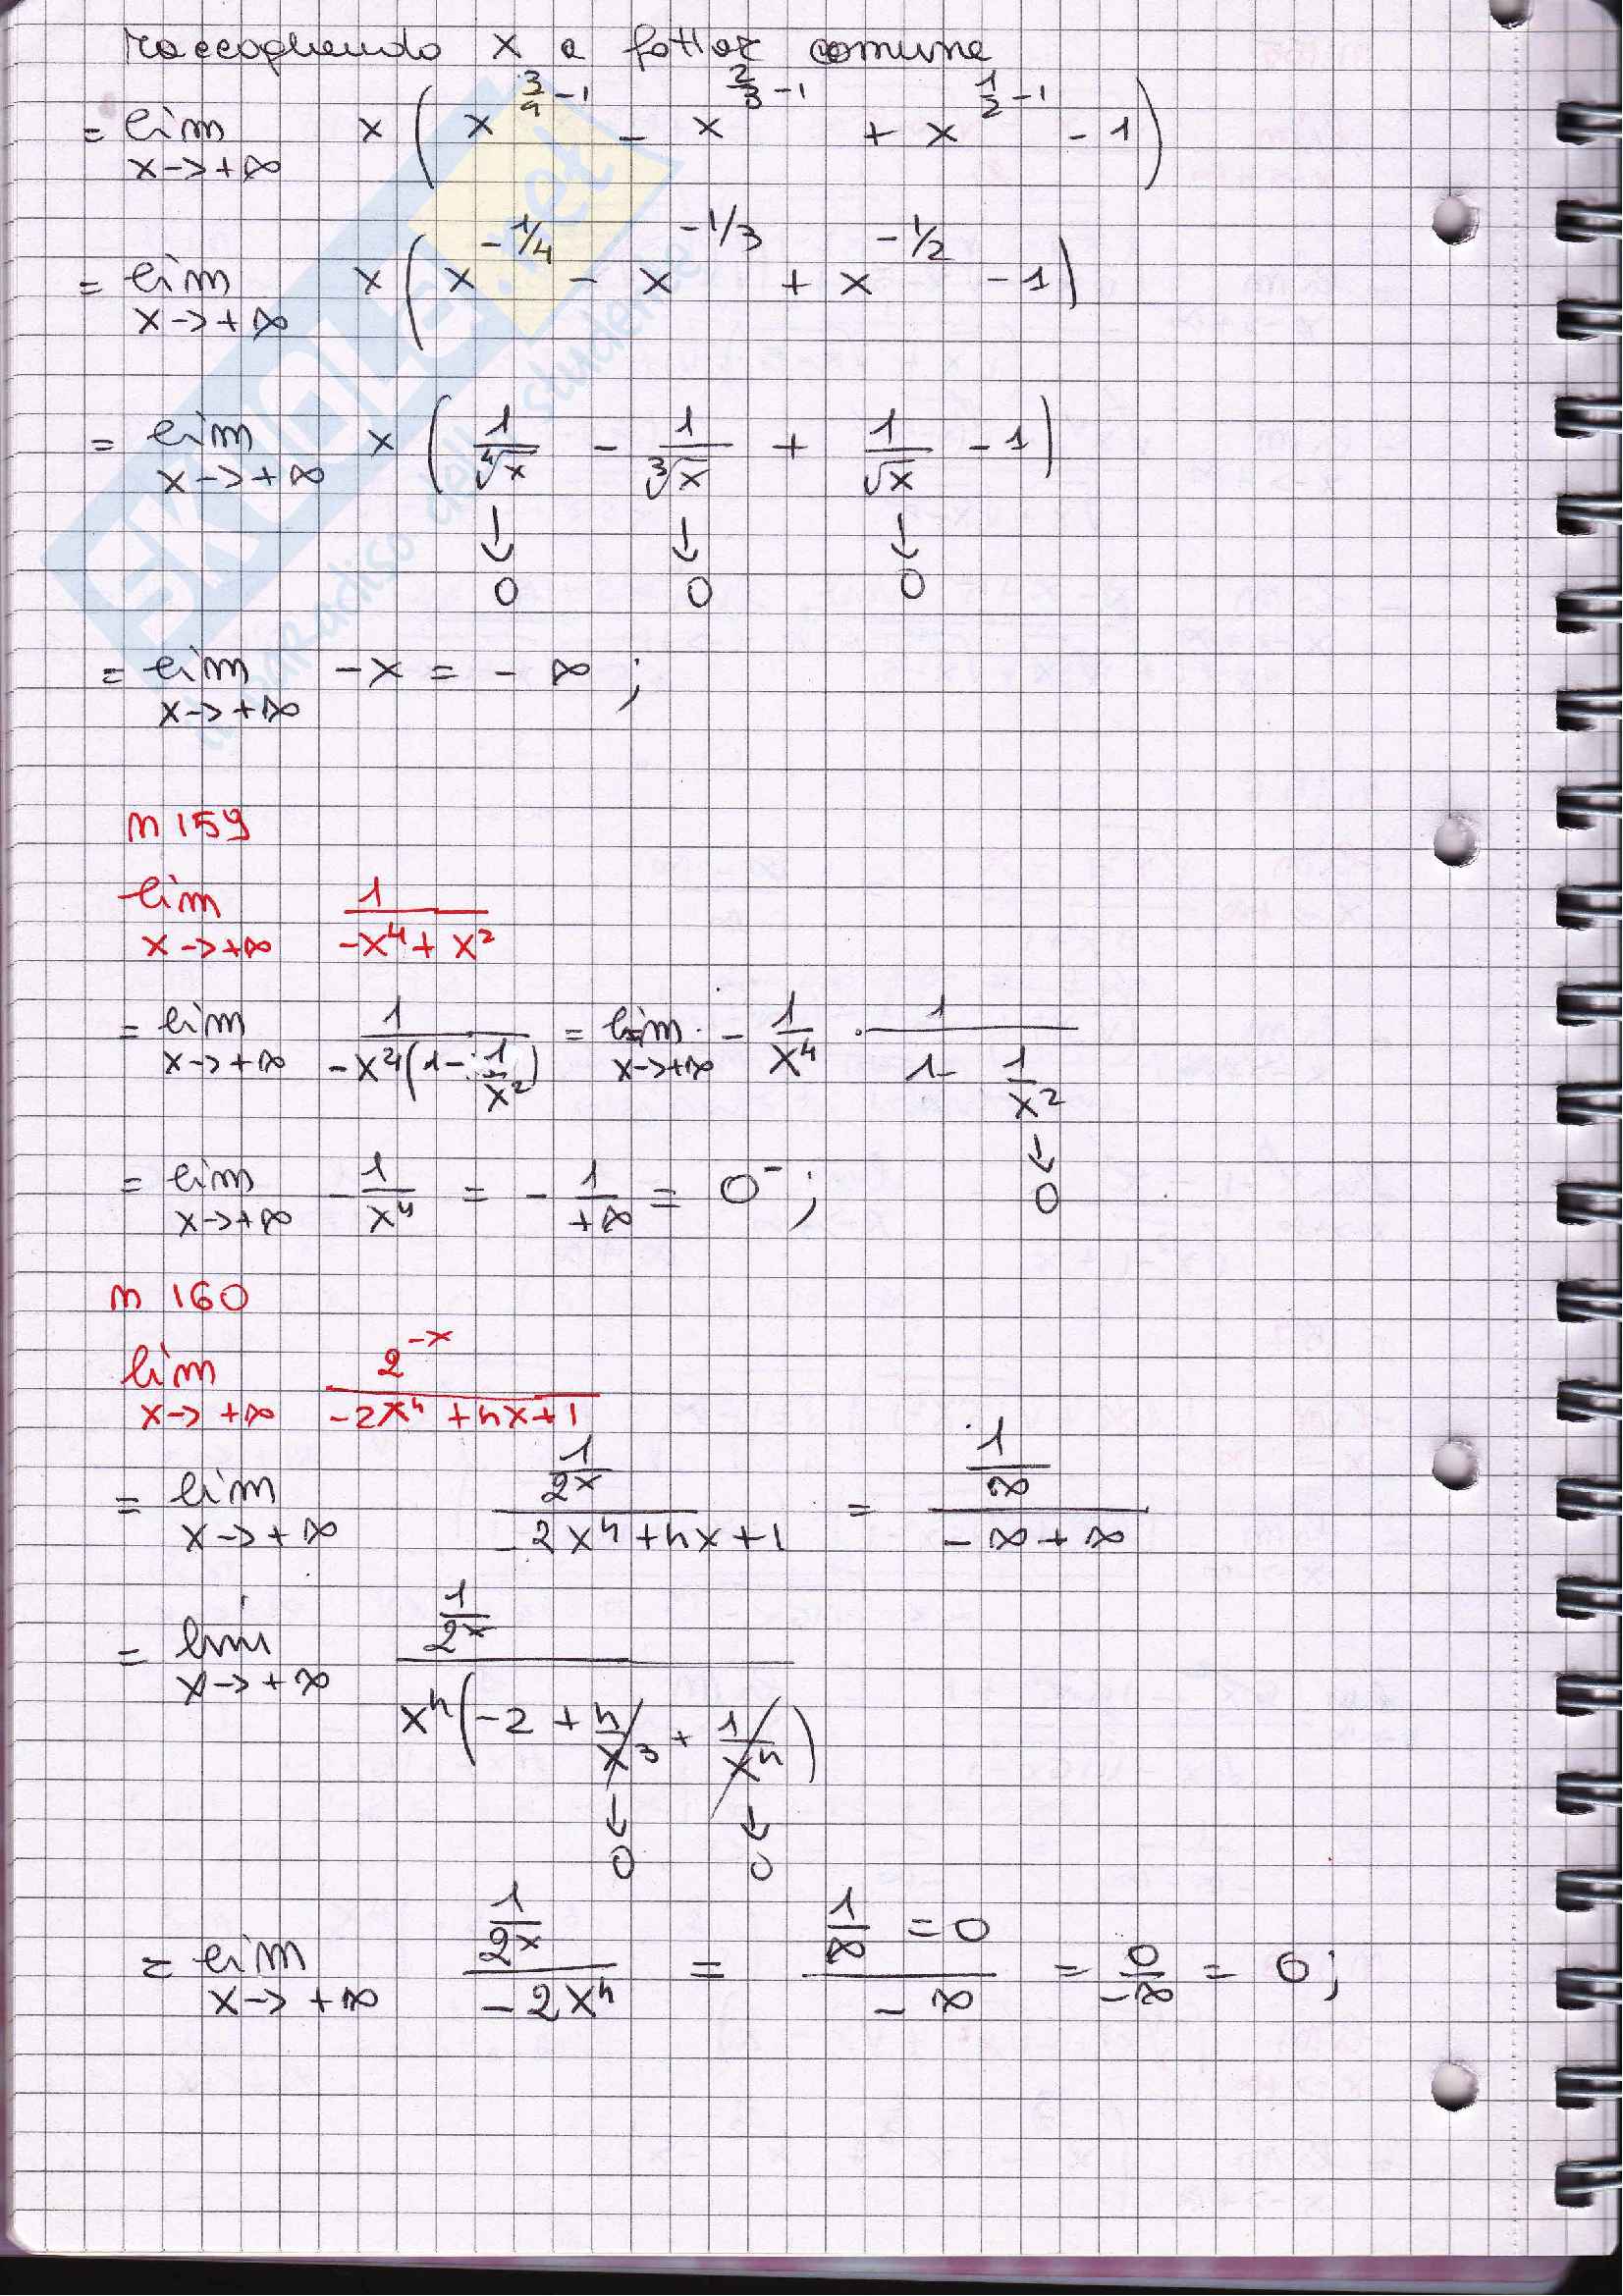 raccogliendo x a fattor comune
= lim x->+∞ x (x^(3/4 - 1) - x^(2/3 - 1) + x^(1/2 - 1) - 1)
= lim x->+∞ x (x^(-1/4) - x^(-1/3) + x^(-1/2) - 1)
= lim x->+∞ x (1/∜x - 1/∛x + 1/√x - 1)
↓ ↓ ↓
0 0 0
= lim x->+∞ -x = -∞ ;
n 159
lim x->+∞ 1/(-x⁴ + x²)
= lim x->+∞ 1/(-x⁴(1 - 1/x²)) = lim x->+∞ - 1/x⁴ · 1/(1 - 1/x²)
↓
0
= lim x->+∞ - 1/x⁴ = - 1/+∞ = 0⁻ ;
n 160
lim x->+∞ 2^(-x)/(-2x⁴ + 4x + 1)
= lim x->+∞ (1/2^x)/(-2x⁴ + 4x + 1) = (1/∞)/(-∞ + ∞)
= lim x->+∞ (1/2^x)/(x⁴(-2 + 4/x³ + 1/x⁴))
↓ ↓
0 0
= lim x->+∞ (1/2^x)/(-2x⁴) = (1/∞ = 0)/(-∞) = 0/-∞ = 0 ;
SKUOLA.net
il paradiso dello studente